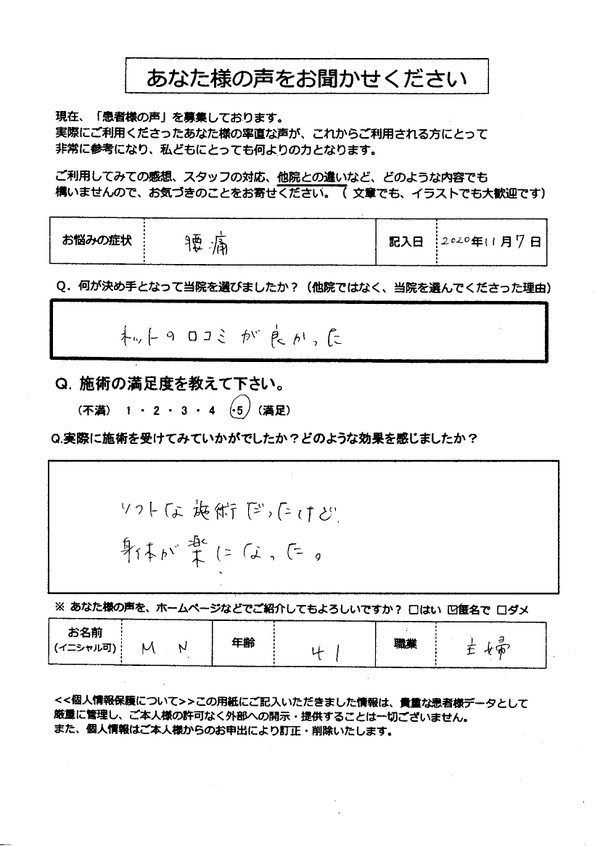 あなた様の声をお聞かせください
現在、「患者様の声」を募集しております。
実際にご利用くださったあなた様の率直な声が、これからご利用される方にとって
非常に参考になり、私どもにとっても何よりの力となります。
ご利用してみての感想、スタッフの対応、他院との違いなど、どのような内容でも
構いませんので、お気づきのことをお寄せください。（ 文章でも、イラストでも大歓迎です）
お悩みの症状 腰痛 記入日 2020年11月7日
Q. 何が決め手となって当院を選びましたか？（他院ではなく、当院を選んでくださった理由）
ネットの口コミが良かった
Q. 施術の満足度を教えて下さい。
（不満） 1 ・ 2 ・ 3 ・ 4 ・5 （満足）
Q.実際に施術を受けてみていかがでしたか？どのような効果を感じましたか？
ソフトな施術だったけど
身体が楽になった。
※ あなた様の声を、ホームページなどでご紹介してもよろしいですか？ □はい ☑匿名で □ダメ
お名前 M N 年齢 41 職業 主婦
(イニシャル可)
<<個人情報保護について>>この用紙にご記入いただきました情報は、貴重な患者様データとして
厳重に管理し、ご本人様の許可なく外部への開示・提供することは一切ございません。
また、個人情報はご本人様からのお申出により訂正・削除いたします。